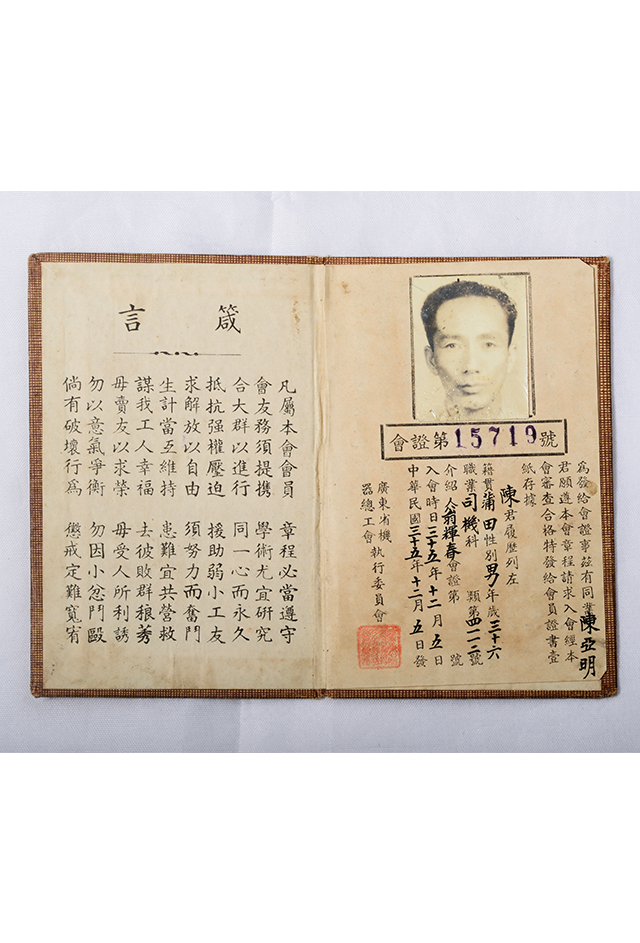 會證第15719號
為發給會證事茲有同業陳亞明
君願遵本會章程請求入會經本
會審查合格特發給會員證書壹
紙存據
陳君履歷列左
籍貫蒲田性別男年歲三十六
職業司機科 類第四一二號
介紹人翁輝春會證第 號
入會時日三十五年十二月五日
中華民國三十五年十二月五日發
廣東省機
器總工會執行委員會
箴言
凡屬本會會員 章程必當遵守
會友務須提携 學術尤宜研究
合大群以進行 同一心而永久
抵抗强權壓迫 援助弱小工友
求解放以自由 須努力而奮鬥
生計當互維持 患難宜共營救
謀我工人幸福 去彼敗群稂莠
毋賣友以求榮 毋受人所利誘
勿以意氣爭衡 勿因小忿鬥毆
倘有破壞行為 懲戒定難寬宥